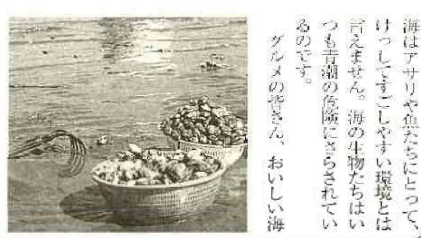 海はアサリや魚たちにとって、
けっしてすごしやすい環境とは
言えません。海の生物たちはい
つも青潮の危険にさらされてい
るのです。
グルメの皆さん、おいしい海